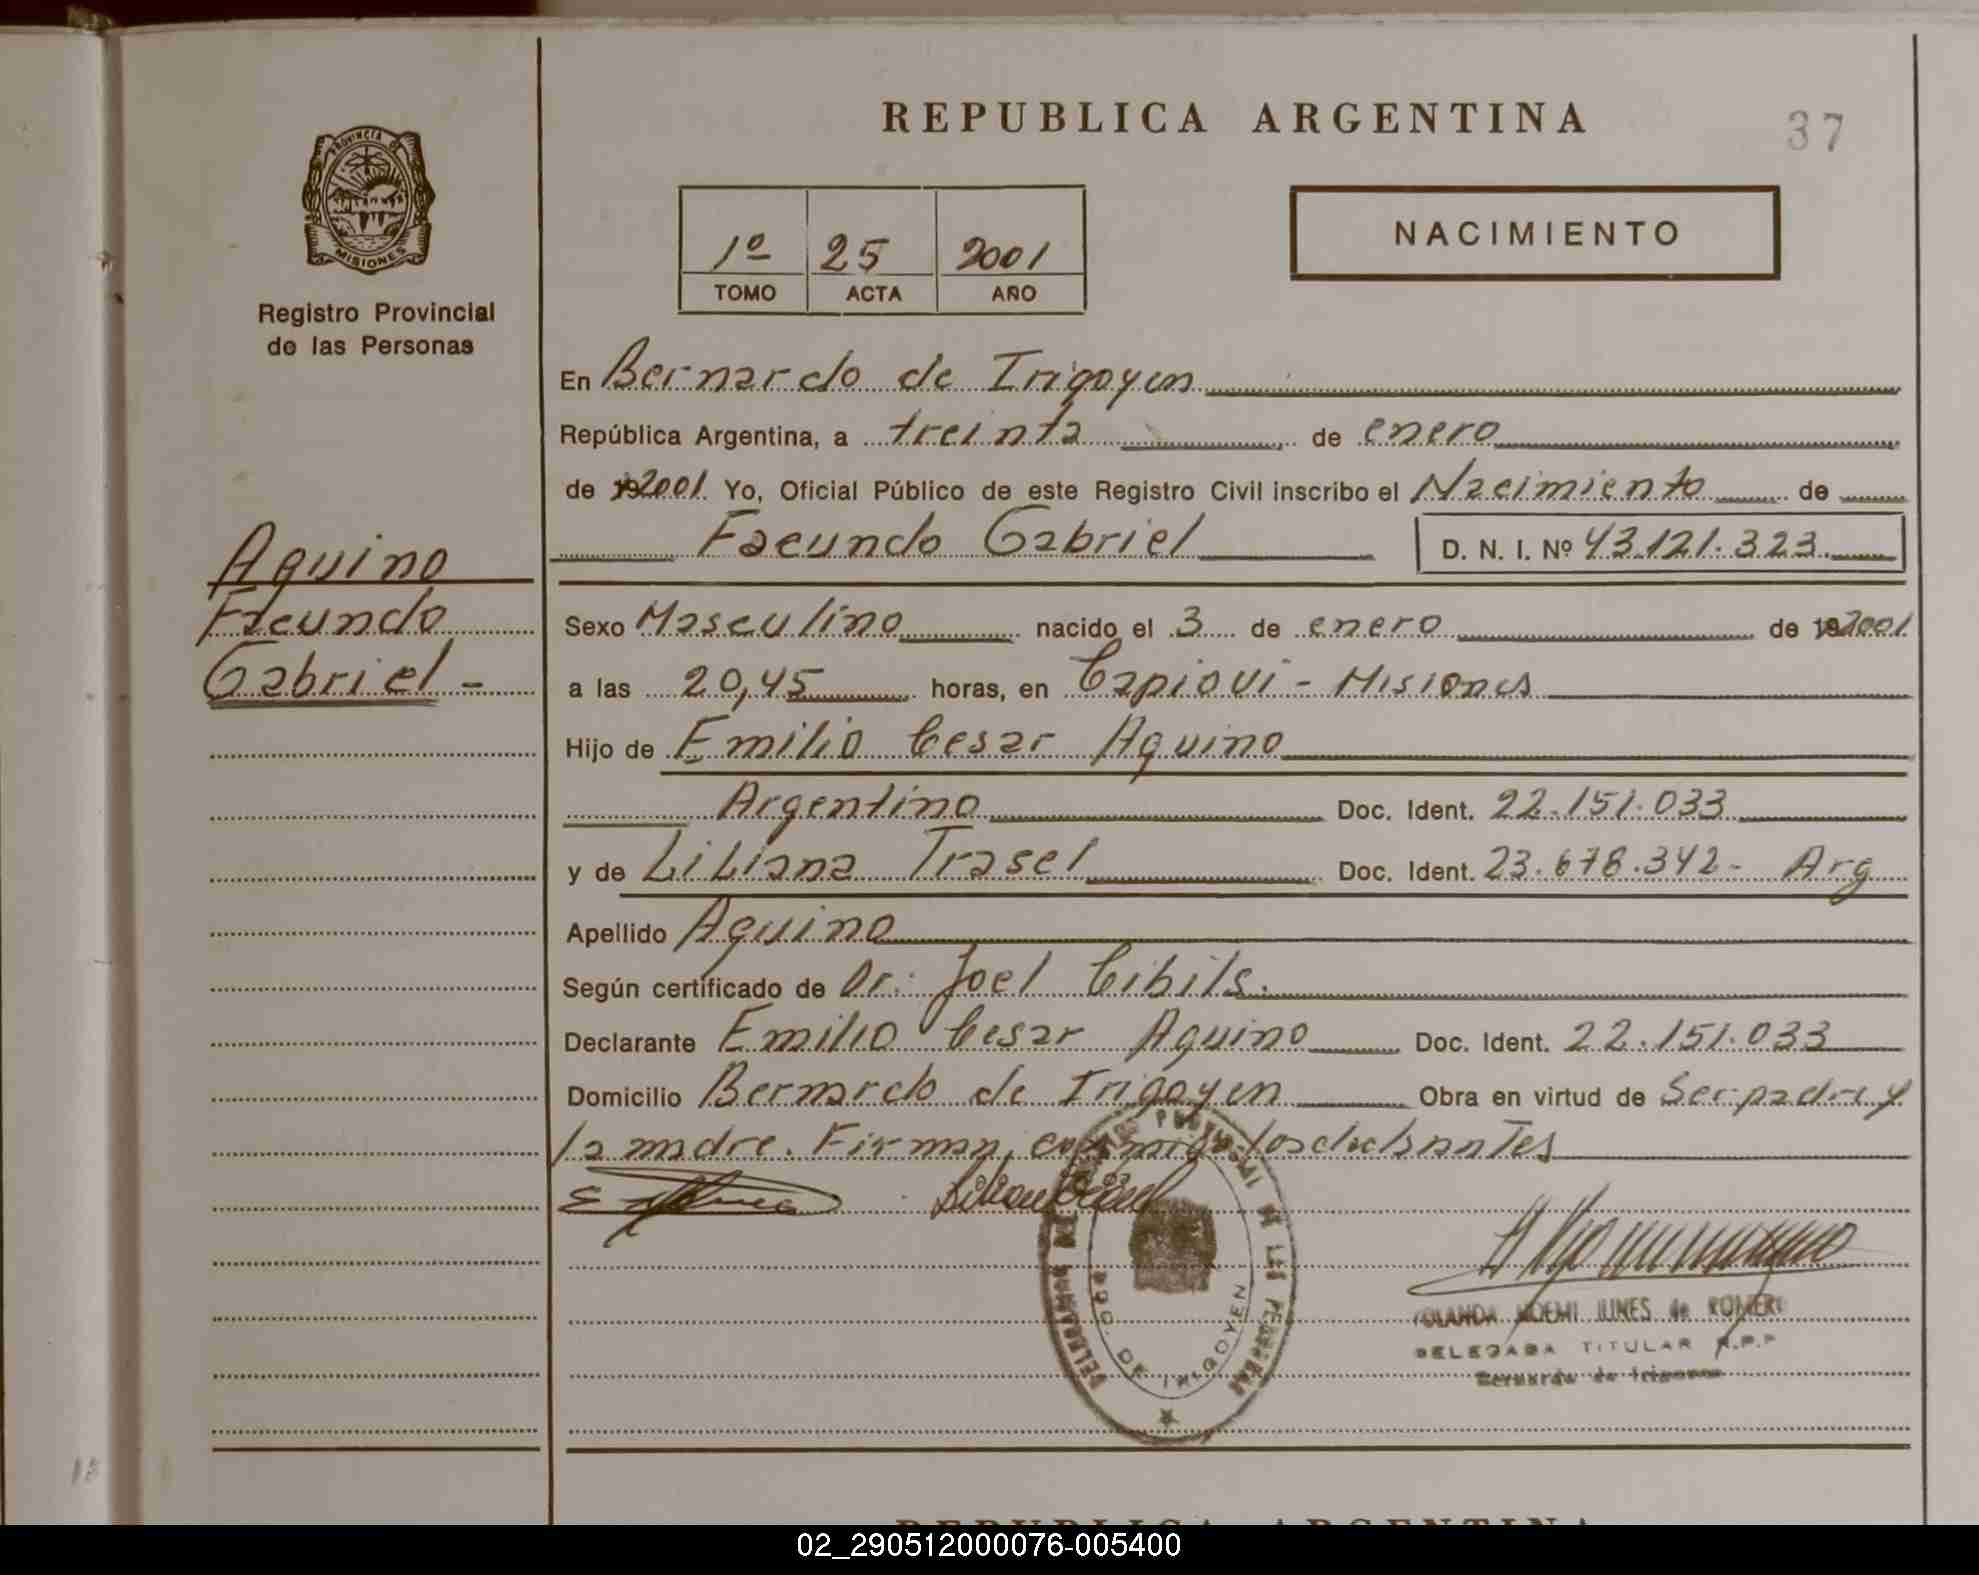 REPUBLICA ARGENTINA
37
PROVINCIA DE
MISIONES
Registro Provincial
de las Personas
1º 25 2001
TOMO ACTA AÑO
NACIMIENTO
En Bernardo de Irigoyen
República Argentina, a treinta de enero
de 2001. Yo, Oficial Público de este Registro Civil inscribo el Nacimiento de
Facundo Gabriel D. N. I. Nº 43.121.323
Aquino
Facundo
Gabriel -
Sexo Masculino nacido el 3 de enero de 2001
a las 20,45 horas, en Capiovi - Misiones
Hijo de Emilio Cesar Aquino
Argentino Doc. Ident. 22.151.033
y de Liliana Trasel Doc. Ident. 23.678.342 - Arg
Apellido Aquino
Según certificado de Dr. Joel Cibils.
Declarante Emilio Cesar Aquino Doc. Ident. 22.151.033
Domicilio Bernardo de Irigoyen Obra en virtud de Ser padre y
la madre. Firman conmigo los declarantes
BDO. DE IRIGOYEN
YOLANDA NOEMI de ROMERO
DELEGADA TITULAR R.P.P
Bernardo de Irigoyen
REPUBLICA ARGENTINA
02_290512000076-005400